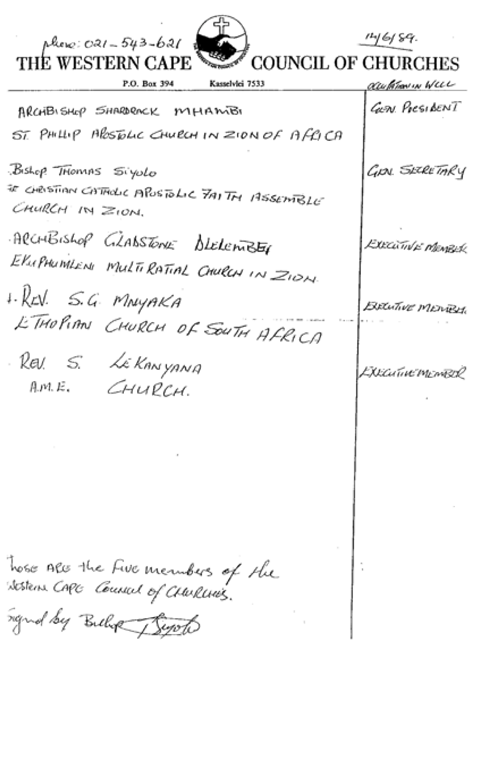 phone: 021-543-621
14/6/89.
THE WESTERN CAPE COUNCIL OF CHURCHES
P.O. Box 394 Kasselvlei 7533
OCCUPATION IN WCCC
ARCHBISHOP SHARDRACK MHAMBI GEN. PRESIDENT
ST. PHILLIP APOSTOLIC CHURCH IN ZION OF AFRICA
Bishop THOMAS SIYOLO GEN. SECRETARY
CHRISTIAN CATHOLIC APOSTOLIC FAITH ASSEMBLE
CHURCH IN ZION.
ARCHBISHOP GLADSTONE EXECUTIVE MEMBER
MULTIRATIAL CHURCH IN ZION
REV. S.G. MNYAKA EXECUTIVE MEMBER
ETHOPIAN CHURCH OF SOUTH AFRICA
REV. S. LEKANYANA EXECUTIVE MEMBER
A.M.E. CHURCH.
Those are the five members of the
Western Cape Council of Churches.
Signed by Bishop Siyolo